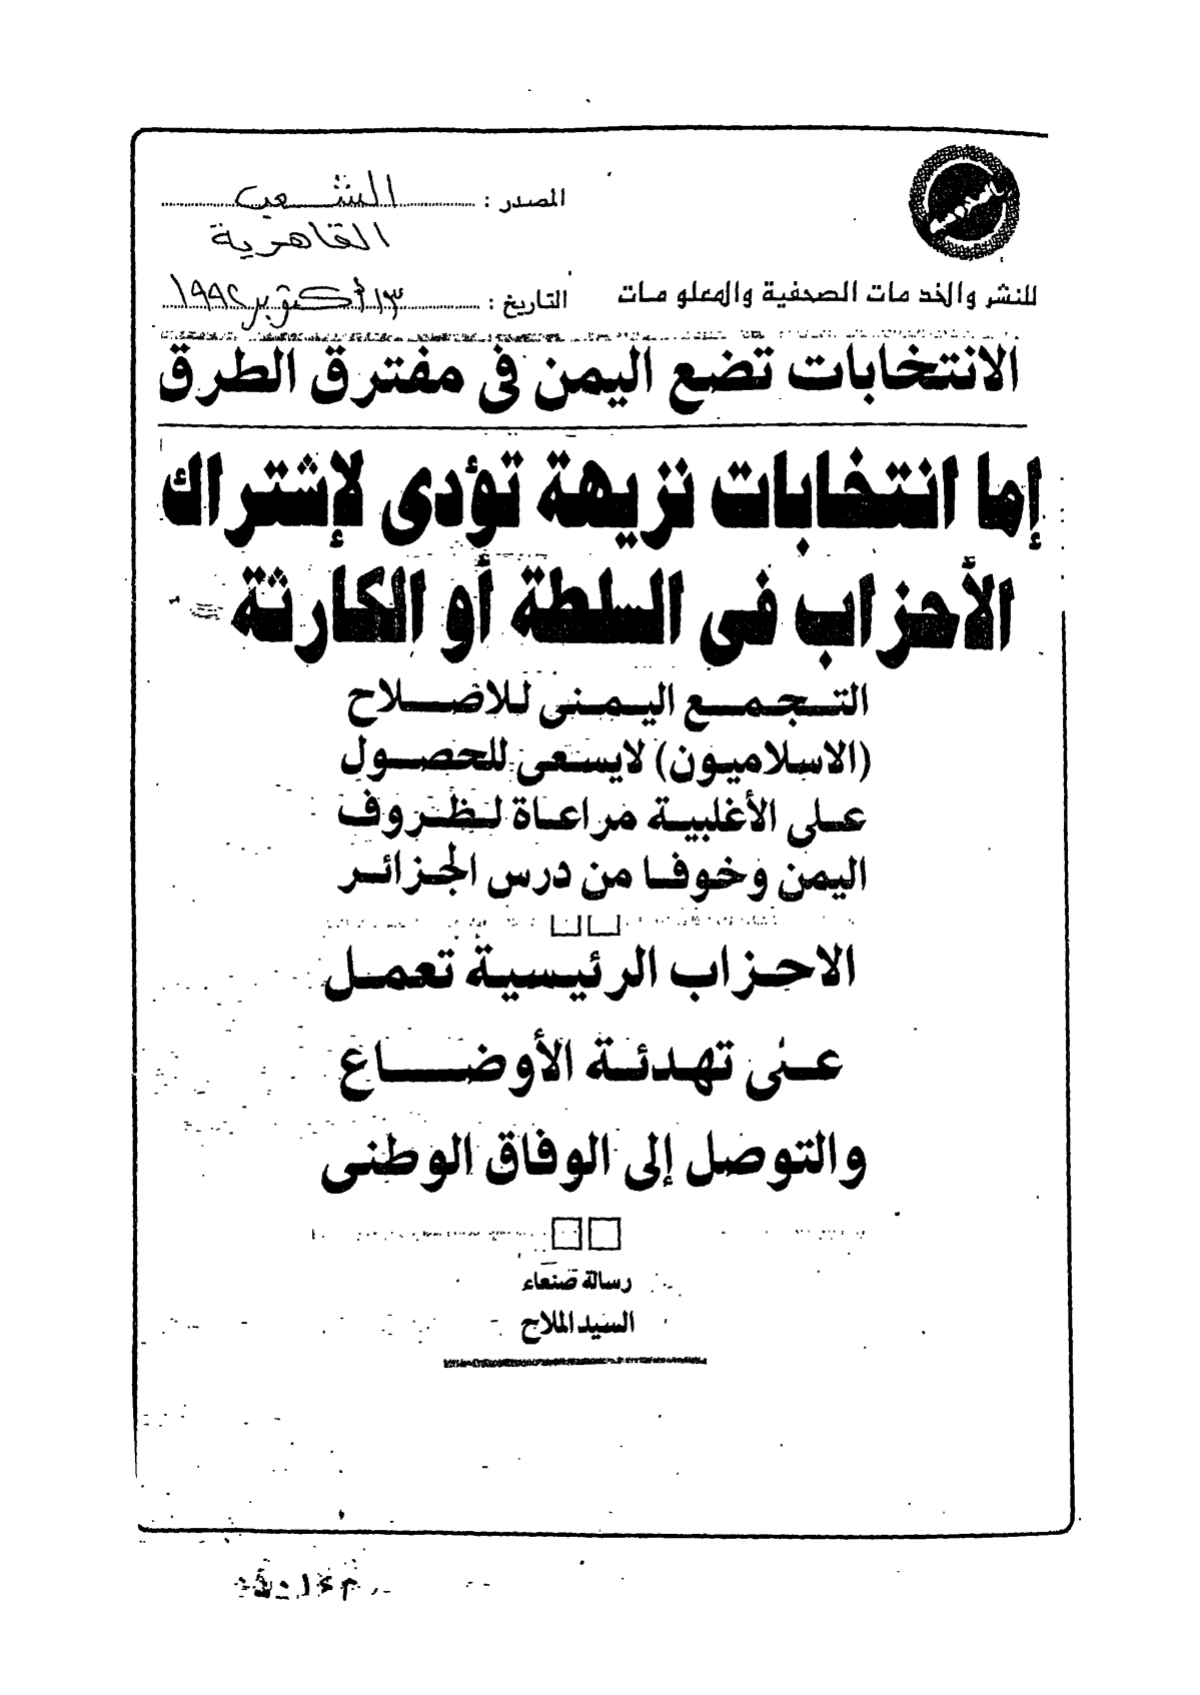 المصدر : الشعب
القاهرية
للنشر والخدمات الصحفية والمعلومات
التاريخ : ١٣ أكتوبر ١٩٩٢
الانتخابات تضع اليمن فى مفترق الطرق
إما انتخابات نزيهة تؤدى لإشتراك
الأحزاب فى السلطة أو الكارثة
التجمع اليمنى للاصلاح
(الاسلاميون) لايسعى للحصول
على الأغلبية مراعاة لظروف
اليمن وخوفا من درس الجزائر
الاحزاب الرئيسية تعمل
على تهدئة الأوضاع
والتوصل إلى الوفاق الوطنى
رسالة صنعاء
السيد الملاح